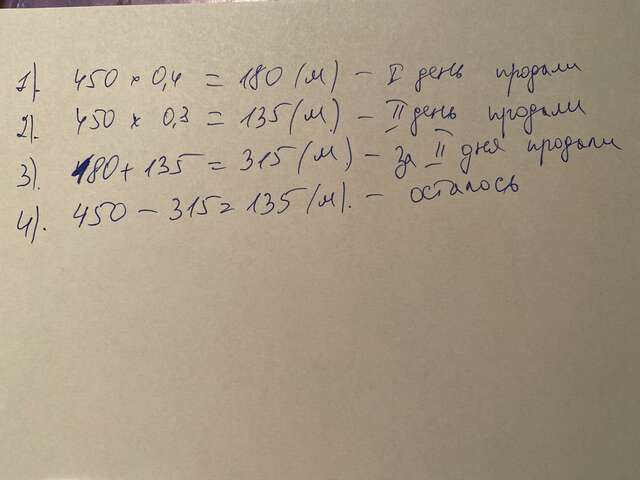 1). 450 × 0,4 = 180 (м) – I день продали
2). 450 × 0,3 = 135 (м) – II день продали
3). 180 + 135 = 315 (м) – за II дня продали
4). 450 – 315 = 135 (м). – осталось